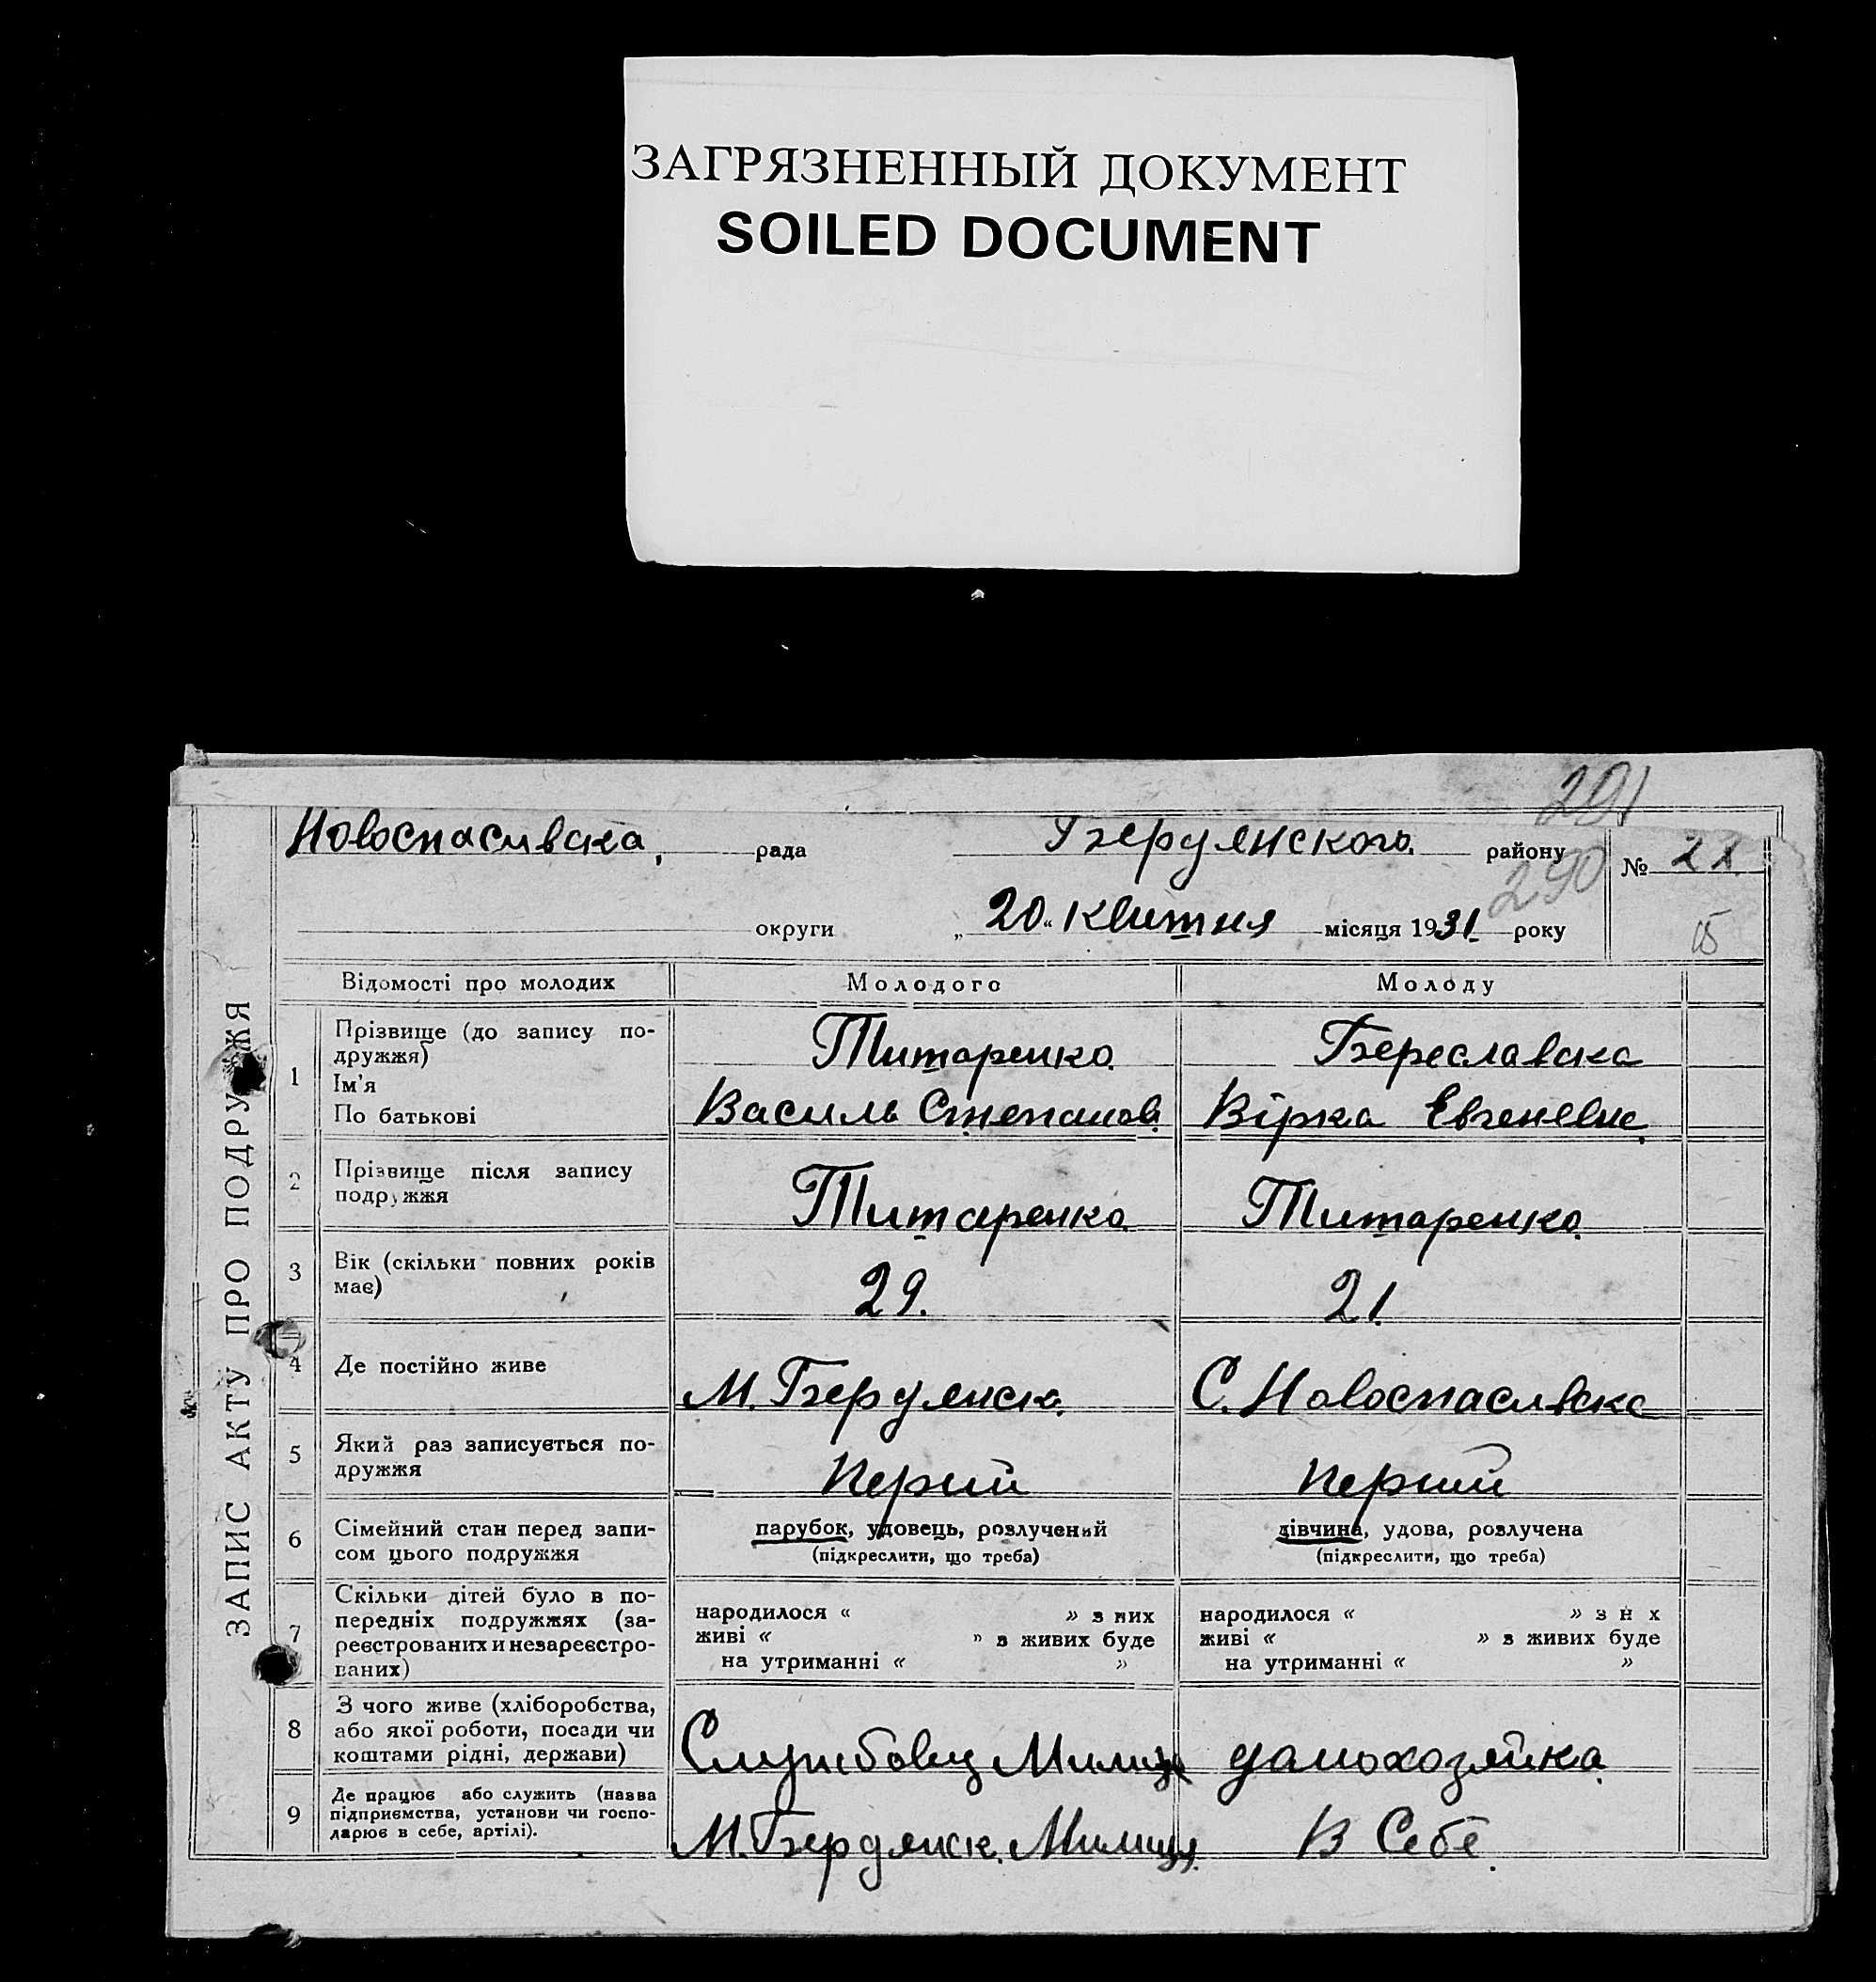 ЗАГРЯЗНЕННЫЙ ДОКУМЕНТ
SOILED DOCUMENT
291
Новоспасивска, рада Бердянского. району № 22
290
округи „20“ Квитня місяця 1931 року
15
ЗАПИС АКТУ ПРО ПОДРУЖЖЯ
Відомості про молодих Молодого Молоду
1 Прізвище (до запису по-
дружжя) Титаренко. Береславска
Ім'я
По батькові Василь Степанов. Вірка Евгеневне.
2 Прізвище після запису
подружжя Титаренко. Титаренко.
3 Вік (скільки повних років
має) 29. 21.
4 Де постійно живе М. Бердянск. С. Новоспасивске
5 Який раз записується по-
дружжя Перший Перший
6 Сімейний стан перед запи- парубок, удовець, розлучений дівчина, удова, розлучена
сом цього подружжя (підкреслити, що треба) (підкреслити, що треба)
7 Скільки дітей було в по-
передніх подружжях (за- народилося « » з них народилося « » з н х
реєстрованих и незареєстро- живі « » з живих буде живі « » з живих буде
ваних) на утриманні « » на утриманні « »
8 З чого живе (хліборобства,
або якої роботи, посади чи
коштами рідні, держави) Службовц домохозяйка.
9 Де працює або служить (назва
підприємства, установи чи госпо-
дарює в себе, артілі). М. Бердянск. В Себе.